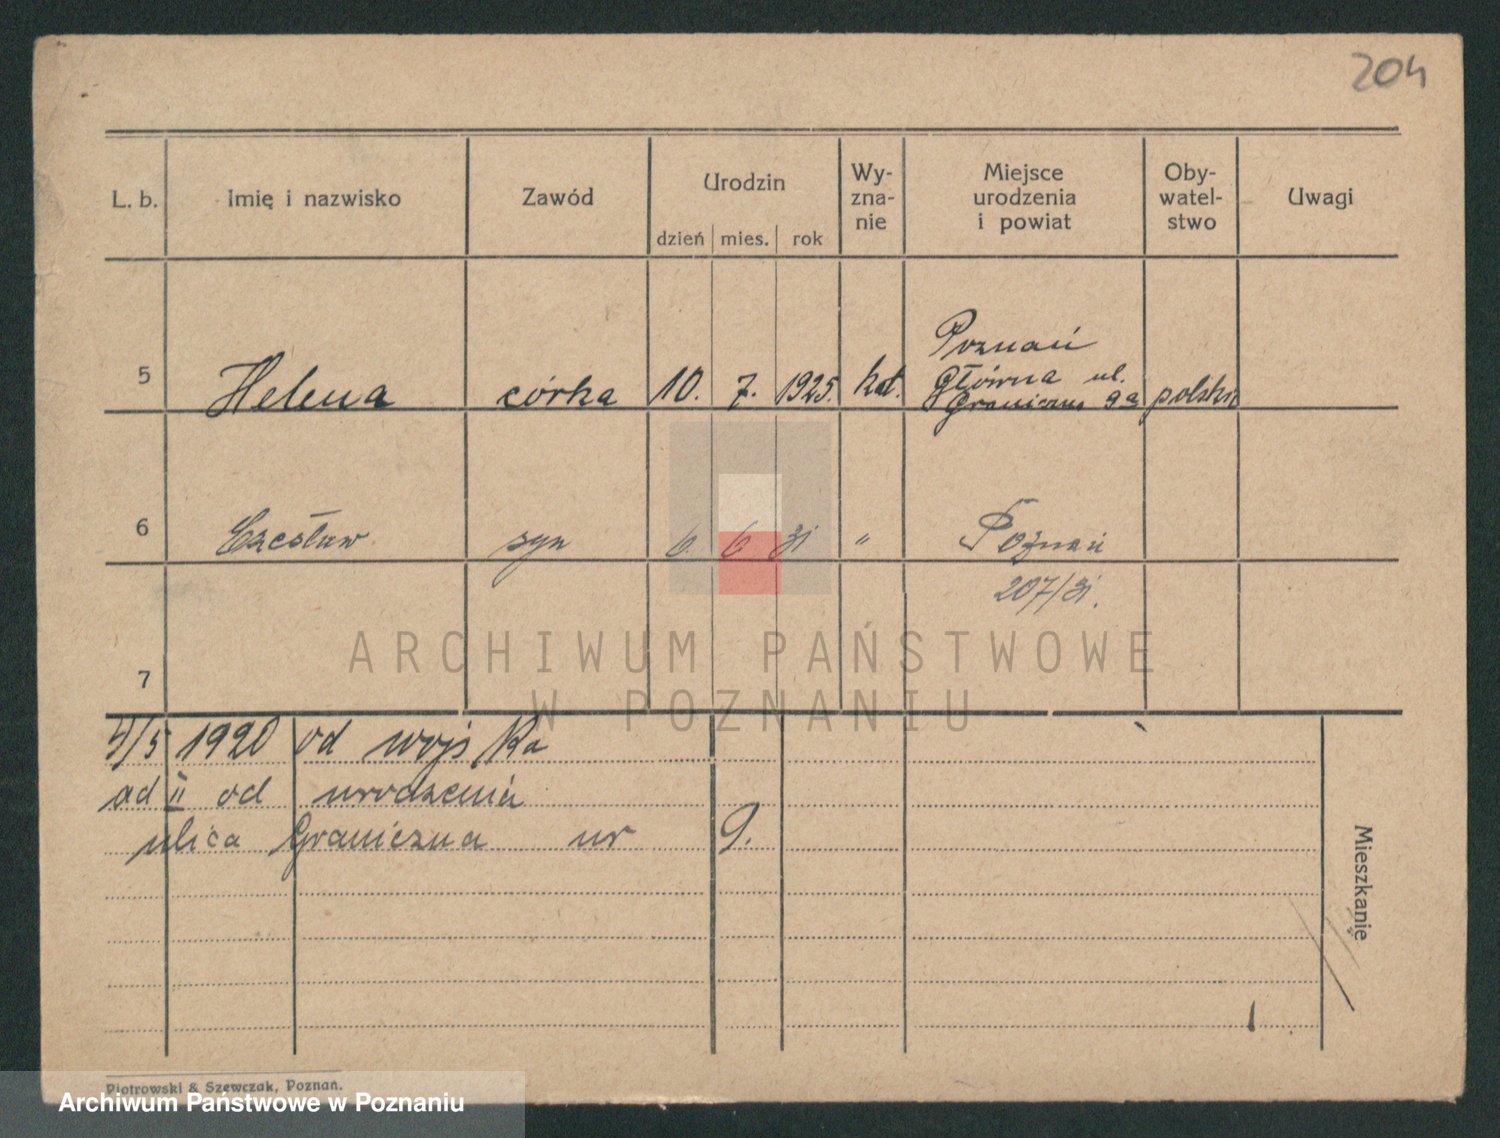 204
L. b. Imię i nazwisko Zawód Urodzin Wy-zna-nie Miejsce urodzenia i powiat Oby-watel-stwo Uwagi
dzień mies. rok
Poznań
Główna ul.
5 Helena córka 10. 7. 1925. kat. Graniczna 9a polska
6 Czesław syn 6. 6 31 " Poznań
207/31.
7
ARCHIWUM PAŃSTWOWE
W POZNANIU
4/5 1920 od wojska
ad II od urodzenia
ulica Graniczna nr 9.
Mieszkanie
Piotrowski & Szewczak, Poznań.
Archiwum Państwowe w Poznaniu